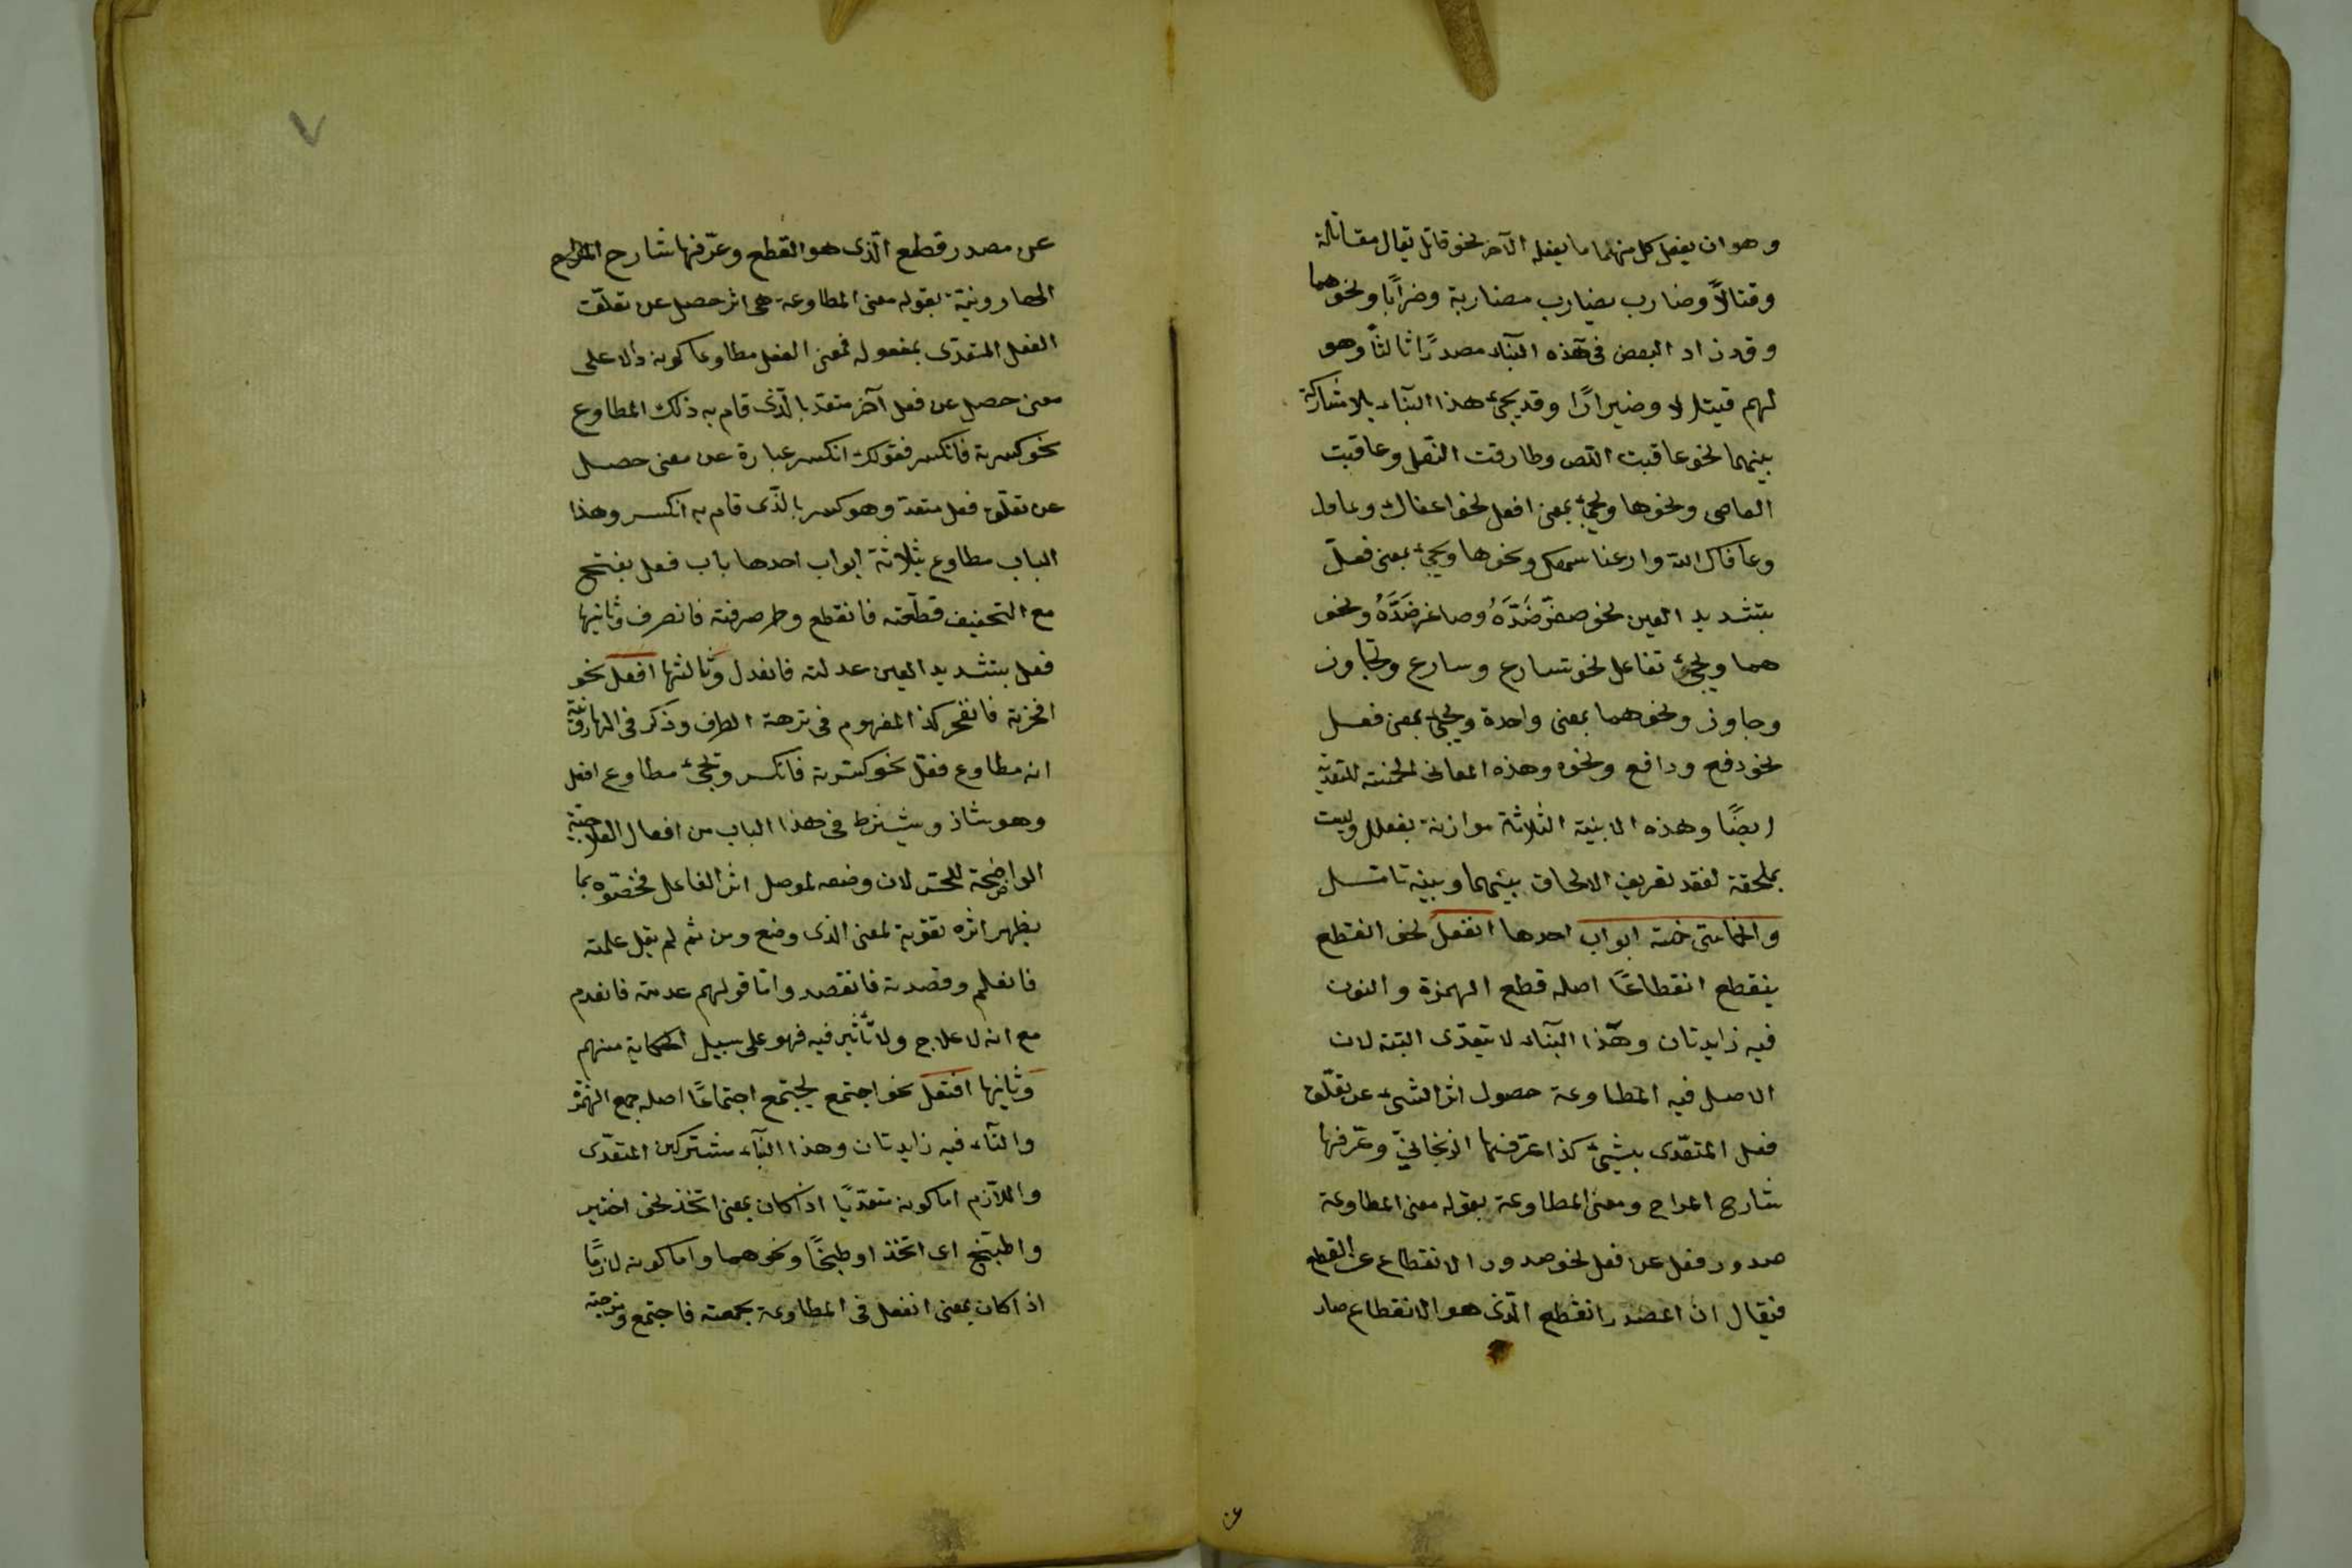 وهو ان يفعل كل منهما ما يفعله الآخر نحو قاتل يقال مقاتلة
وقتالاً وضارب يضارب مضاربة وضرابًا ونحوهما
وقد زاد البعض فى هذه البنآء مصدرًا ثالثاً وهو
لهم قيتالا وضيرابًا وقد يجئ هذا البنآء بلا مشاركة
بينهما نحو عاقبت اللص وطارقت النعل وعاقبت
العاصى ونحوها ويجئ بمعنى افعل نحو اعفاك
وعافاك الله وارعنا سمعك ونحوها ويجئ بمعنى فعل
بتشديد العين نحو صعر خده وصاعر خده ونحو
هما ويجئ تفاعل نحو تسارع وسارع وتجاوز
وجاوز ونحوهما بمعنى واحدة ويجئ بمعنى فعل
نحو دفع ودافع ونحوه وهذه المعانى للتعدية
ايضًا وهذه الابنية الثلاثة موازنة بفعلل وليست
بملحقة لفقد تعريف الالحاق بينهما وبينه تامل
والخماسى خمسة ابواب احدها انفعل نحو انقطع
ينقطع انقطاعًا اصله قطع الهمزة والنون
فيه زايدتان وهذا البنآء لا يتعدى البتة لان
الاصل فيه المطاوعة حصول اثر الشئ عن تعلق
فعل المتعدى بشئ كذا عرفها الزنجانى وعرفها
شارح المراح ومعنى المطاوعة بقوله معنى المطاوعة
صدور فعل عن فعل نحو صدور الانقطاع عن القطع
فيقال ان المصدر انقطع الذى هو الانقطاع صار
عن
٧
عن مصدر قطع الذى هو القطع وعرفها شارح المراح
الهارونية بقوله معنى المطاوعة هى اثر حصل عن تعلق
الفعل المتعدى بمفعوله فمعنى الفعل مطاوعا كونه دالا على
معنى حصل عن فعل آخر متعد بالذى قام به ذلك المطاوع
نحو كسرته فانكسر فقولك انكسر عبارة عن معنى حصل
عن تعلق فعل متعد وهو كسر بالذى قام به انكسر وهذا
الباب مطاوع بثلاثة ابواب احدها باب فعل بفتح
مع التخفيف قطعته فانقطع وصرفته فانصرف وثانيها
فعل بتشديد العين عدلته فانعدل وثالثها افعل نحو
فانفجر كذا المفهوم فى نزهة الطرف وذكر فى الهارونية
انه مطاوع فعل نحو كسرته فانكسر وتجئ مطاوع افعل
وهو شاذ ويشترط فى هذا الباب من افعال العلاجية
الواضحة للحس لان وضعه لموصل اثر الفاعل فخصّوه بما
يظهر اثره تقوية لمعنى الذى وضع ومن ثم لم يقل علمته
فانعلم وقصدته فانقصد واما قولهم عدمته فانعدم
مع انه لا علاج ولا تأثير فيه فهو على سبيل الحكاية منهم
وثانيها افتعل نحو اجتمع يجتمع اجتماعًا اصله جمع الهمزة
والتآء فيه زايدتان وهذا البنآء مشترك بين المتعدى
واللازم اما كونه متعديًا اذا كان بمعنى اتخذ نحو اختبز
واطبخ اى اتخذ وطبخًا ونحوهما واما كونه لازمًا
اذا كان بمعنى انفعل فى المطاوعة نحو جمعته فاجتمع ومزجته